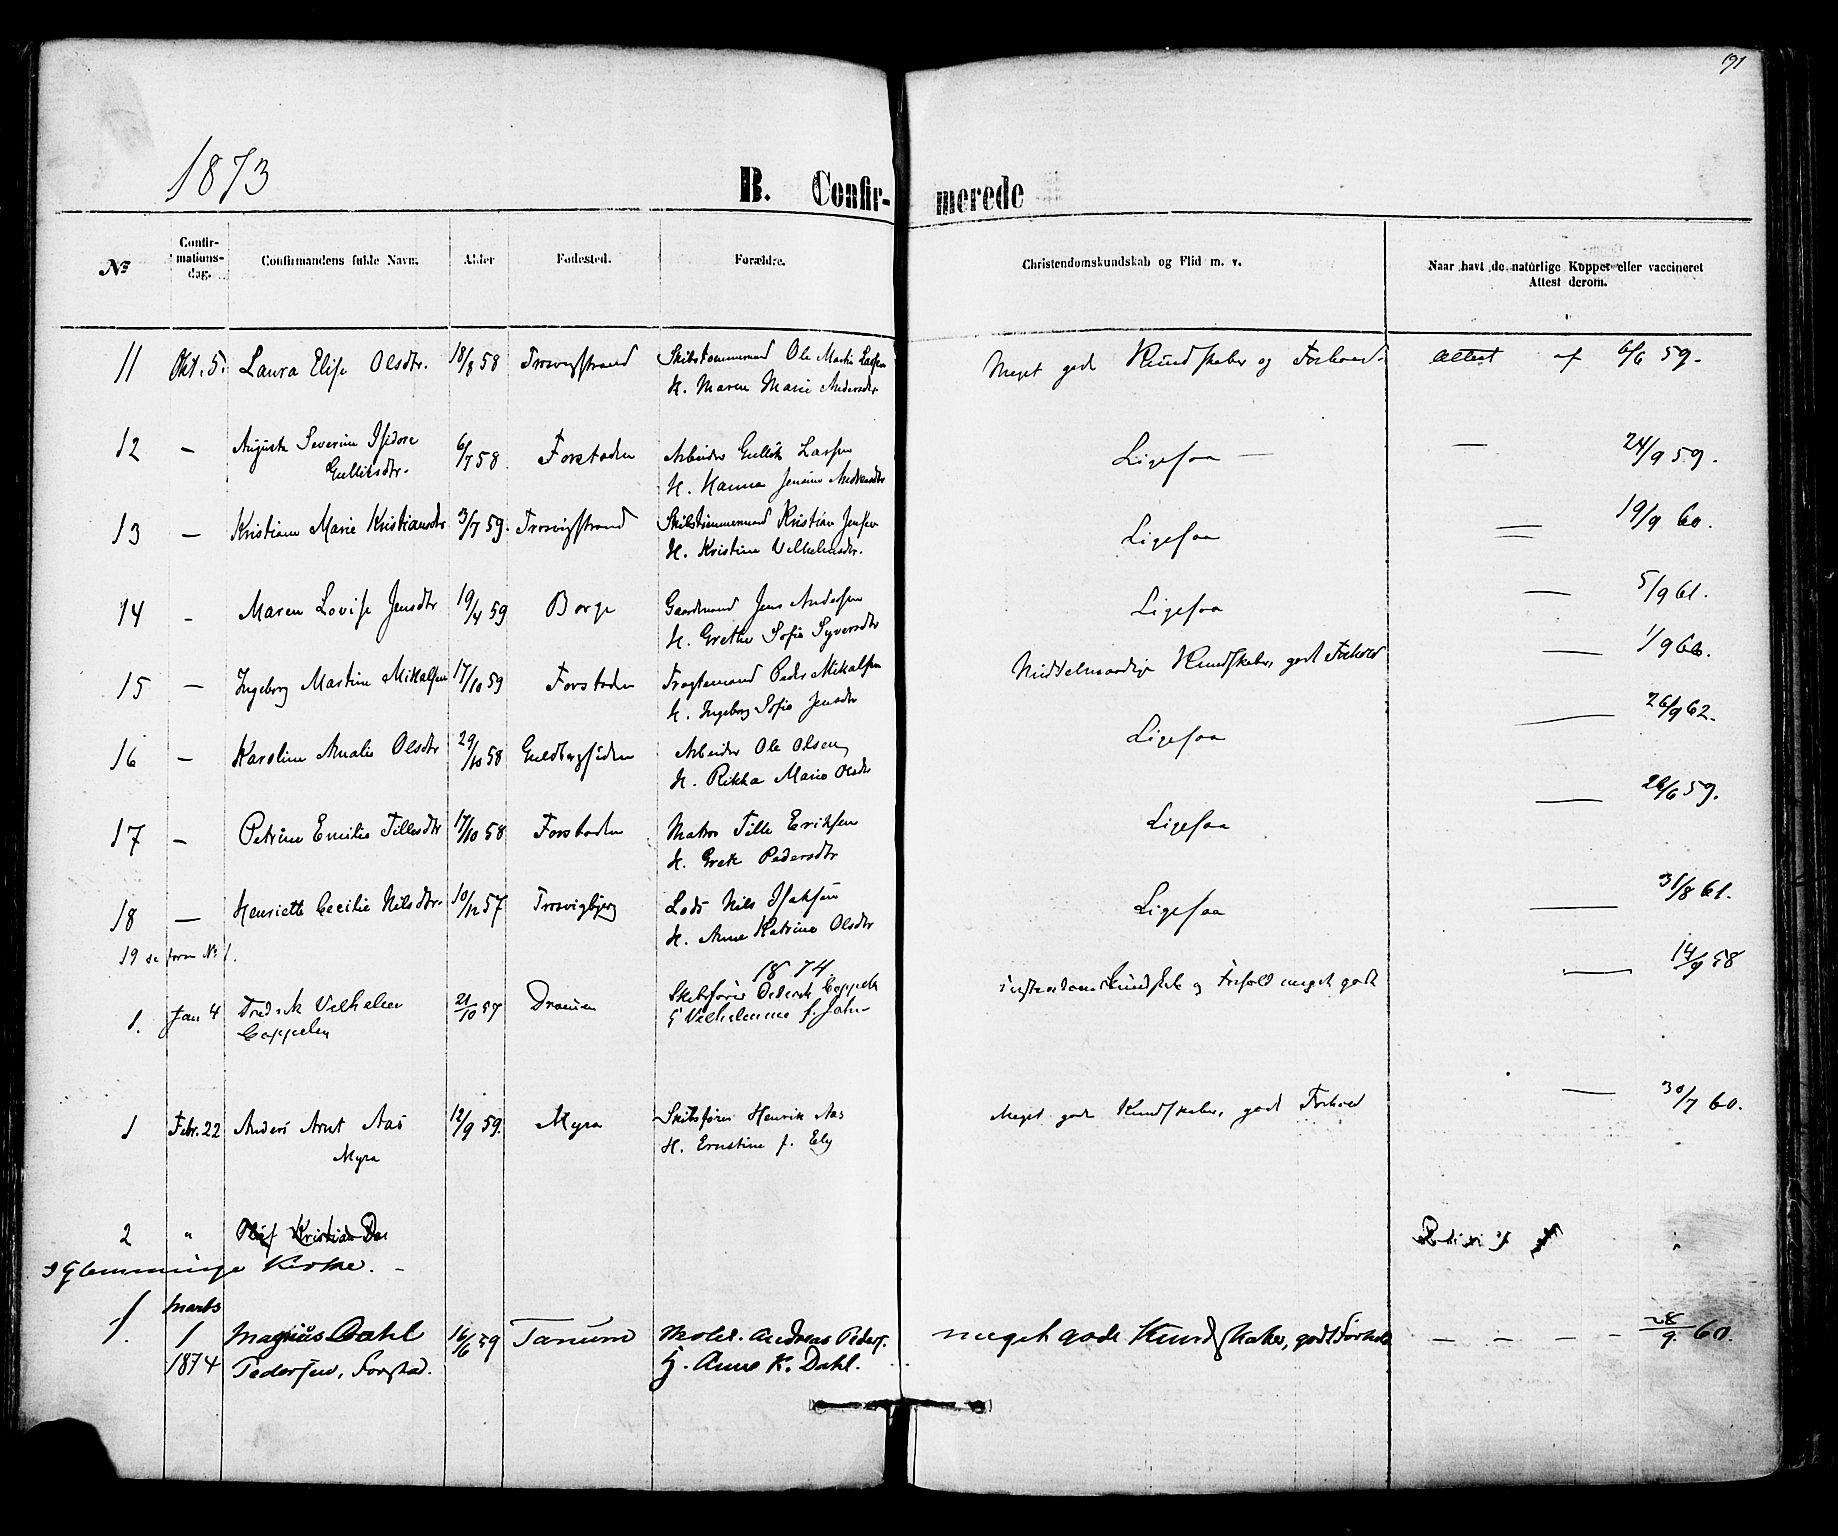 191
1873
B. Confir- merede
No
Confir-
mations-
dag.
Confirmandens fulde Navn.
Alder
Fødested.
Forældre.
Christendomskundskab og Flid m. v.
Naar havt de naturlige Kopper eller vaccineret
Attest derom.
11 Okt. 5. Laura Elise Olsdtr. 18/8 58 Trosvigstrand Skibstømmermand Ole Martin Larsen Meget gode Kundskaber og Forhold. Attest af 6/6 59.
H. Maren Marie Andersdtr
12 — Augusta Severine Isidore 6/7 58. Forstaden Arbeider Gullik Larsen Ligesaa — — 24/9 59.
Gulliksdtr. H. Hanna
13 — Kristiane Marie Kristiansdtr 3/7 59. Trosvigstrand Skibstømmermand Kristian Jensen Ligesaa — 19/9 60.
H. Kristine Vilhelmsdtr.
14 - Maren Lovise Jensdtr 19/4 59 Borge Gaardmand Jens Andersen Ligesaa — 5/9 61.
H. Grethe Sofie Syversdtr
15 — Ingeborg Martine Mikalsen 17/10 59 Forstaden Peder Mikalsen Middelmaadige Kundskaber, godt Forhold — 1/9 66.
H. Ingeborg Sofie Jensdtr
16 — Karoline Amalie Olsdtr 29/10 58 Guldbergsiden Arbeider Ole Olsen Ligesaa — 26/9 62.
H. Rikka Marie Olsdtr
17 — Petrine Emilie Tillesdtr 17/10 58 Forstaden Matros Tille Eriksen Ligesaa — 26/6 59.
H. Grete Pedersdtr
18 — Henriette Cecilie Nilsdtr. 10/12 57 Trosvigbjerg Lods Nils Isaksen Ligesaa — 31/8 61.
H. Anne Katrine Olsdtr
19 se foran No 1.
1874
1. Jan 4 Fredrik Vilhelm 21/10 57 Drammen Skibsfører Diderik Cappelen Kundskab og Forhold meget godt — 14/9 58
Cappelen H Vilhelmine f. Jahn
1 Febr. 22 Anders Arnt Aas 12/9 59. Myra Skibsfører Henrik Aas Meget gode Kundskaber, godt Forhold — 30/7 60.
Myra H. Ernstine f. Ely
2 " Olaf Kristian
I Glemminge Kirke. -
1. Marts
1 Magnus Dahl 16/6 59 Tanum Andreas Peders. meget gode Kundskaber, godt Forhold — — — — 28/9 60.
1874 Pedersen, Forstad. H. Anne K. Dahl.